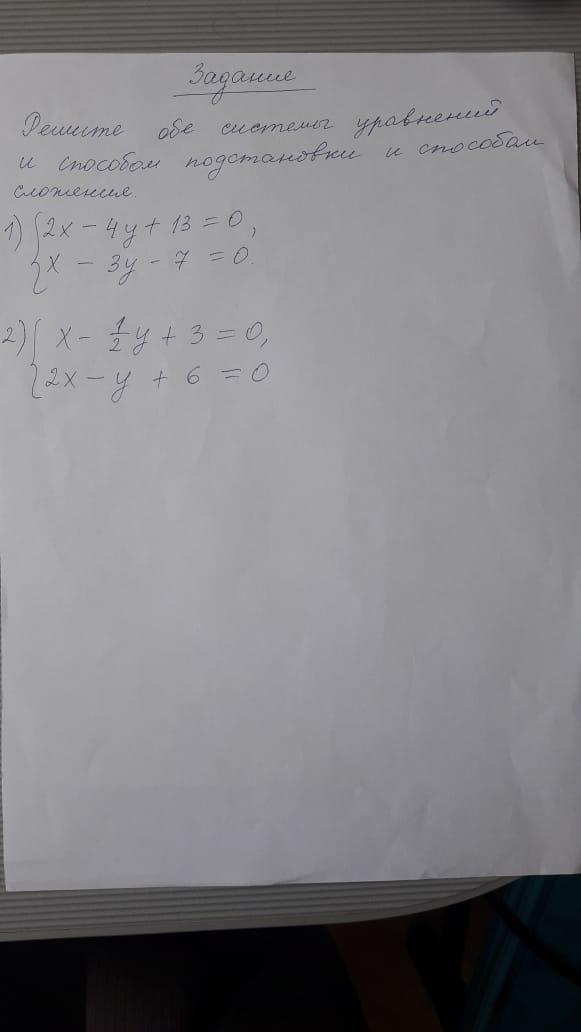 Задание
Решите обе системы уравнений
и способом подстановки и способом
сложение.
1) {2x - 4y + 13 = 0,
{x - 3y - 7 = 0.
2) { x - 1/2 y + 3 = 0,
{2x - y + 6 = 0